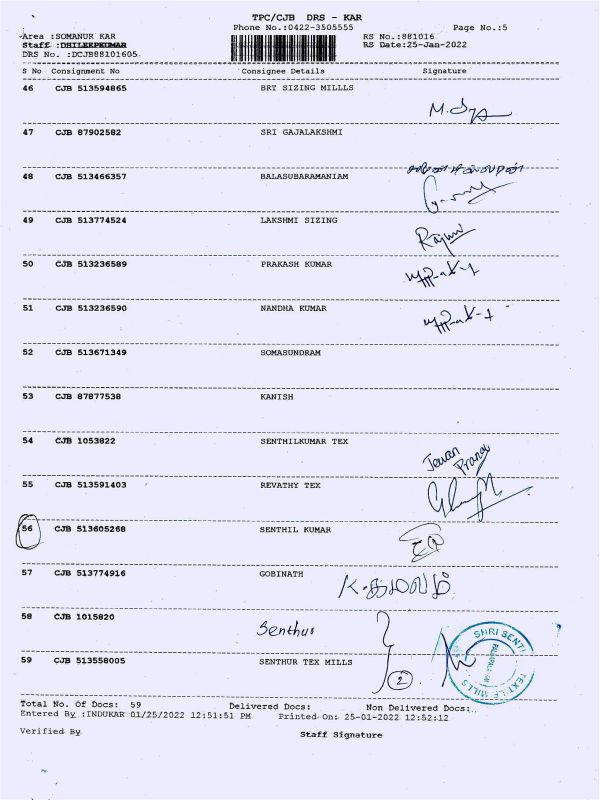 TPC/CJB DRS - KAR
Phone No.:0422-3505555 Page No.:5
Area :SOMANUR KAR RS No.:881016
Staff :DHILEEPKUMAR RS Date:25-Jan-2022
DRS No. :DCJB88101605
S No Consignment No Consignee Details Signature
46 CJB 513594865 BRT SIZING MILLLS
47 CJB 87902582 SRI GAJALAKSHMI
48 CJB 513466357 BALASUBARAMANIAM
49 CJB 513774524 LAKSHMI SIZING
50 CJB 513236589 PRAKASH KUMAR
51 CJB 513236590 NANDHA KUMAR
52 CJB 513671349 SOMASUNDRAM
53 CJB 87877538 KANISH
54 CJB 1053822 SENTHILKUMAR TEX
55 CJB 513591403 REVATHY TEX
56 CJB 513605268 SENTHIL KUMAR
57 CJB 513774916 GOBINATH
58 CJB 1015820 Senthur
59 CJB 513558005 SENTHUR TEX MILLS 2
SHRI SENT
TEXTILE MILLS
Total No. Of Docs: 59 Delivered Docs: Non Delivered Docs:
Entered By :INDUKAR 01/25/2022 12:51:51 PM Printed On: 25-01-2022 12:52:12
Verified By Staff Signature